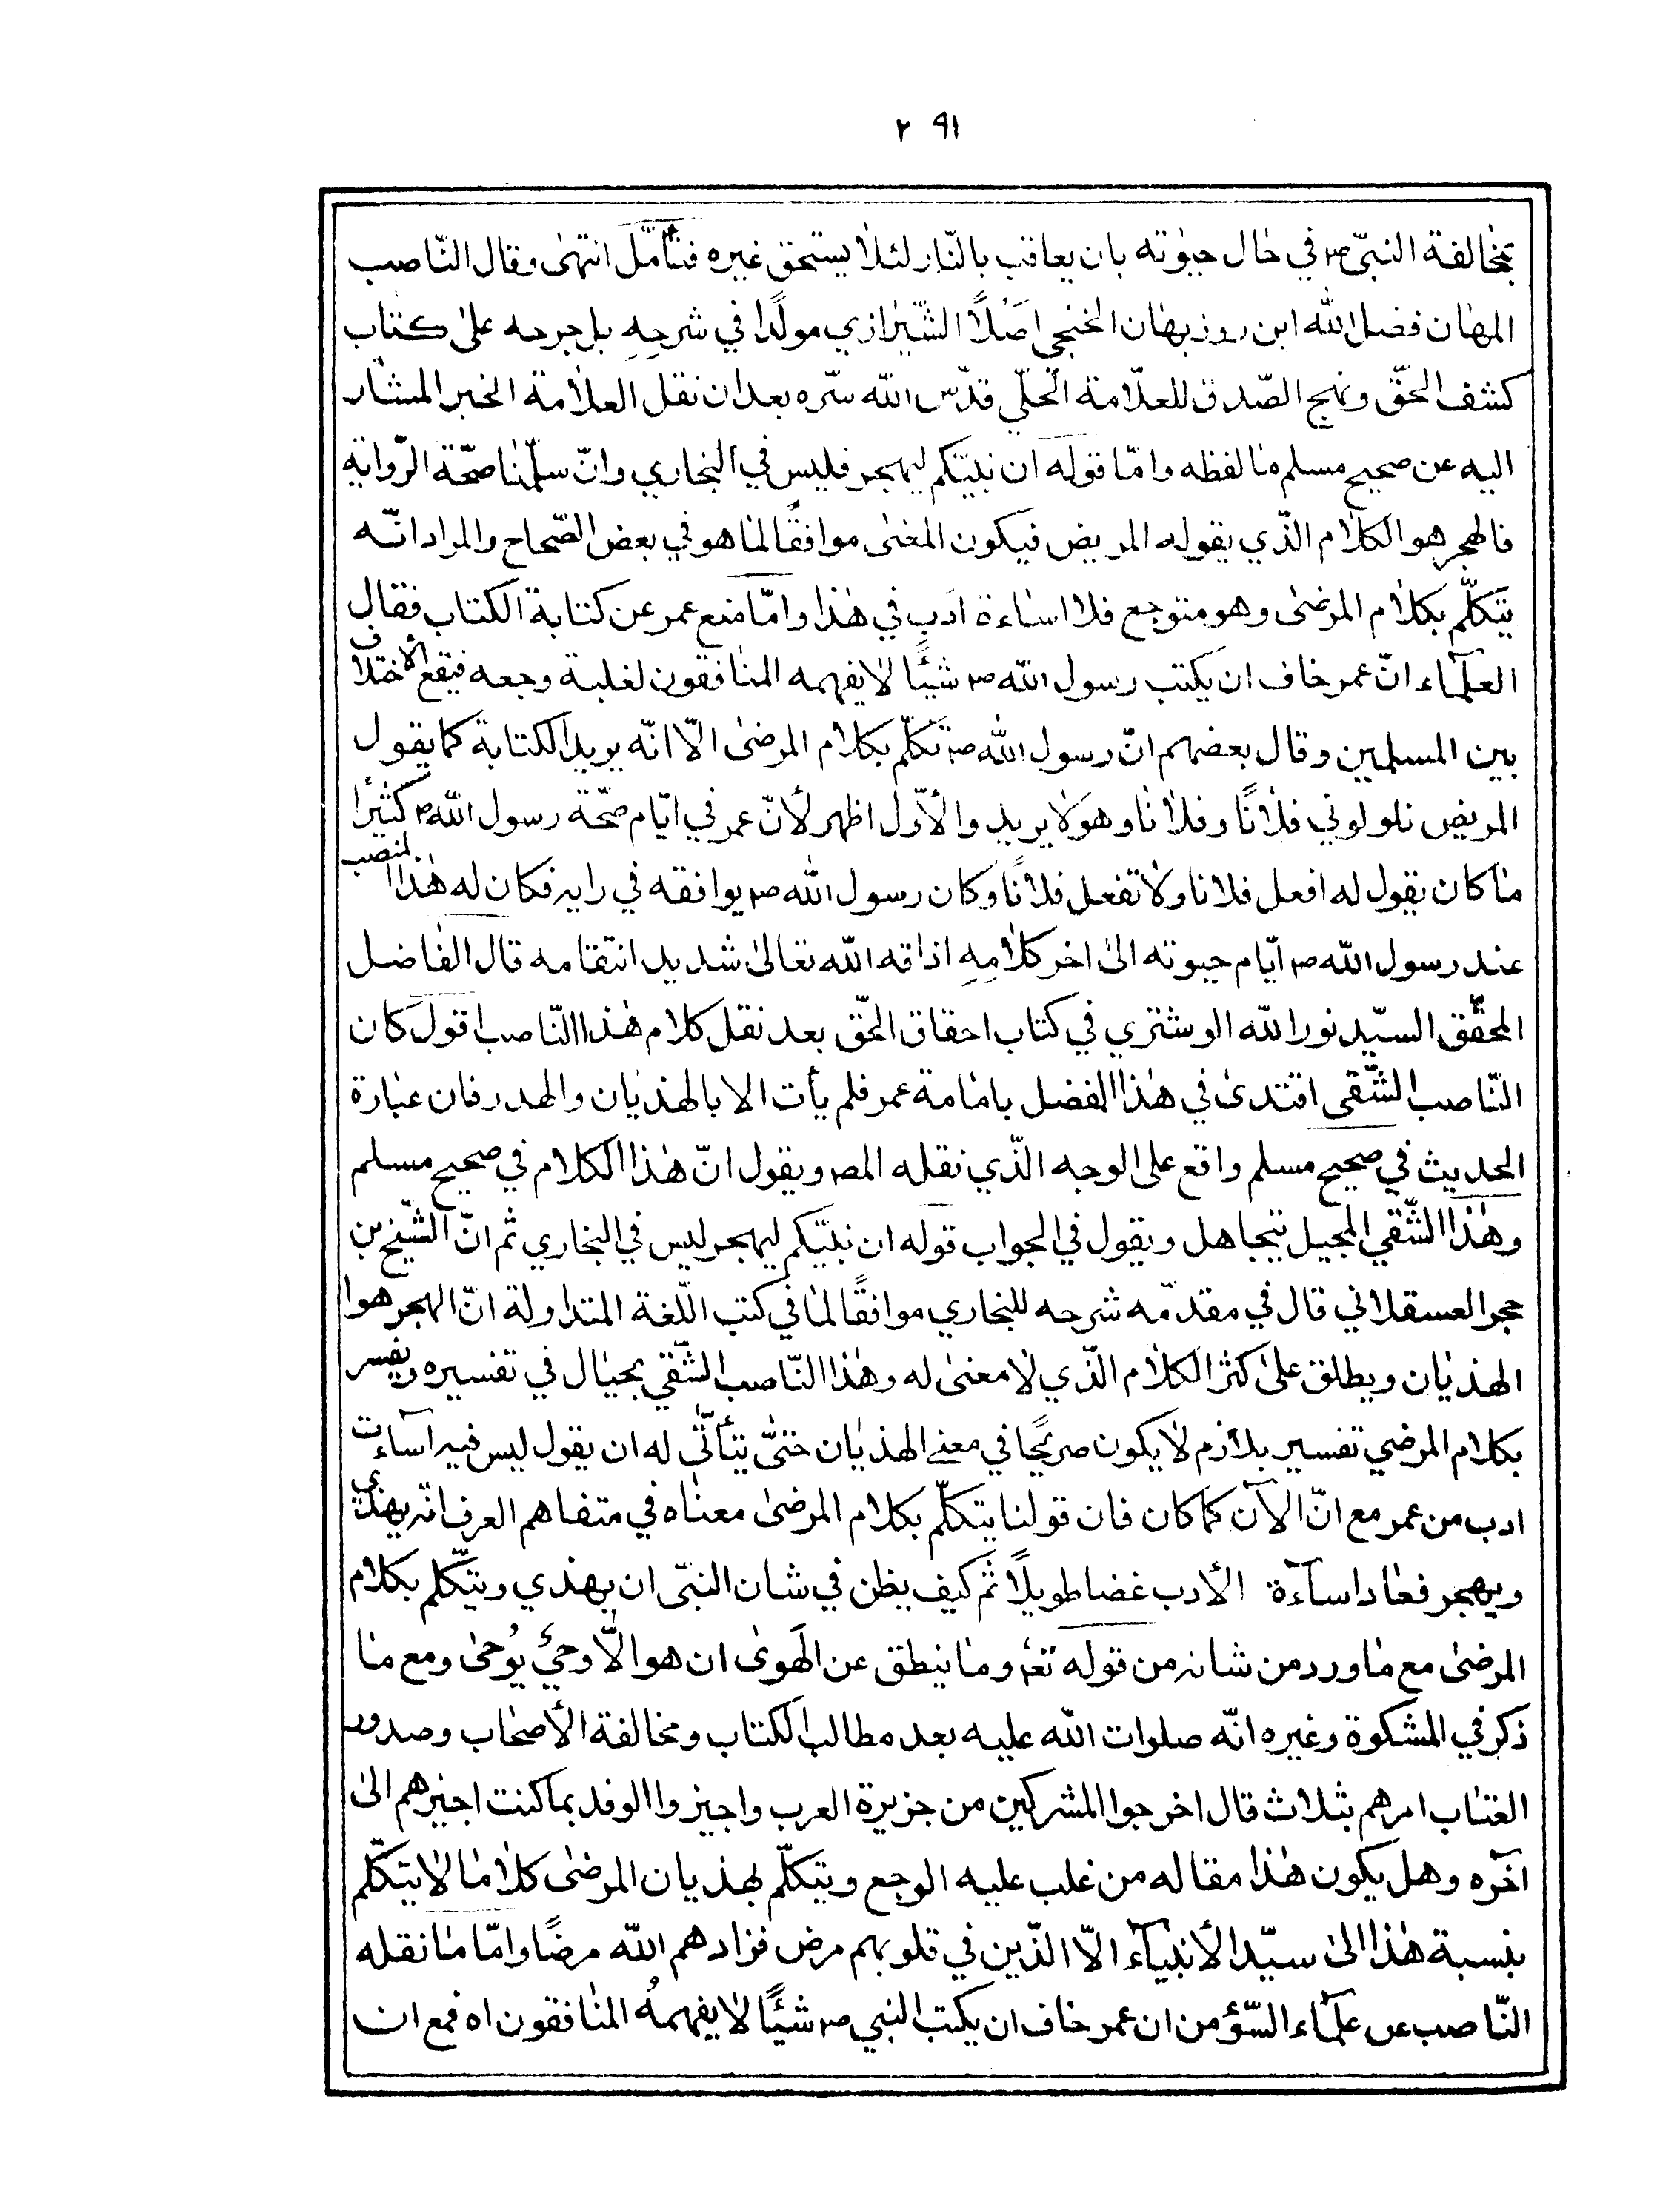 ٢٩١
بمخالفة النبّى ص في حال حيوته بان يعاقب بالنّار لئلا يستحق غيره فتأمّل انتهى وقال النّاصب
المهان فضل الله ابن روزبهان الخنجي اصلاً الشيرازي مولدًا في شرحِهِ بل جرحه على كتاب
كشف الحقّ ونهج الصّدق للعلّامة الحلّي قدّس الله سّره بعد ان نقل العلامة الخبر المشار
اليه عن صحيح مسلم ما لفظه وامّا قوله ان نبيّكم ليهجر فليس في البخاري وانّ سلّمنا صحّة الرّواية
فالهجر هو الكلام الّذي يقوله المريض فيكون المعنى موافقًا لما هو في بعض الصّحاح والمراد انّه
يتكلّم بكلام المرضى وهو متوجع فلا اساءة ادبٍ في هذا وامّا منع عمر عن كتابة الكتاب فقال
العلمآء انّ عمر خاف ان يكتب رسول الله ص شيئًا لا يفهمه المنافقون لغلبة وجعه فيقع الاختلاف
بين المسلمين وقال بعضهم انّ رسول الله ص تكلّم بكلام المرضى الّا انّه يريد الكتابة كما يقول
المريض ناولوني فلانًا وفلانا وهو لا يريد والأوّل اظهر لأنّ عمر في ايّام صحّة رسول الله ص كثيرًا
ما كان يقول له افعل فلانا ولا تفعل فلانًا وكان رسول الله ص يوافقه في رايه فكان له هذا المنصب
عند رسول الله ص ايّام حيوته الى اخر كلامِهِ اذاقه الله تعالى شديد انتقامه قال الفاضل
المحقّق السيّد نور الله الوشتري في كتاب احقاق الحقّ بعد نقل كلام هذا النّاصب اقول كان
النّاصب الشّقى اقتدى في هذا الفضل بامامة عمر فلم يأت الا بالهذيان والهدر فان عبارة
الحديث في صحيح مسلم واقع على الوجه الّذي نقله المص ويقول انّ هذا الكلام في صحيح مسلم
وهذا الشّقي المحيل يتجاهل ويقول في الجواب قوله ان نبيّكم ليهجر ليس في البخاري ثم انّ الشّيخ بن
حجر العسقلاني قال في مقدّمه شرحه للبخاري موافقًا لما في كتب اللّغة المتداولة انّ الهجر هوا
الهذيان ويطلق على كثر الكلام الّذي لا معنى له وهذا النّاصب الشّقي يحيال في تفسيره ويفسر
بكلام المرضي تفسير بلازم لا يكون صريحًا في معنى الهذيان حتىّ يتأتّى له ان يقول ليس فيه اسآءت
ادب من عمر مع انّ الآن كما كان فان قولنا يتكلّم بكلام المرضى معناه في متفاهم العرف انّه يهذي
ويهجر فعاد اسآءة الأدب غضا طويلًا ثم كيف يظن في شان النبّى ان يهذي ويتكّلم بكلام
المرضى مع ما ورد من شانه من قوله تعم وما ينطق عن الهوى ان هو الّا وحيٌ يُوحى ومع ما
ذكر في المشكوة وغيره انّه صلوات الله عليه بعد مطالب الكتاب ومخالفة الأصحاب وصدور
العتاب امرهم بثلاث قال اخرجوا المشركين من جزيرة العرب واجيزوا الوفد بما كنت اجيزهم الى
آخره وهل يكون هذا مقاله من غلب عليه الوجع ويتكلّم بهذيان المرضى كلاما لا يتكلّم
بنسبة هذا الى سيّد الأنبيآء الّا الّذين في قلوبهم مرض فزادهم الله مرضًا وامّا ما نقله
النّاصب عن علمآء السّؤ من ان عمر خاف ان يكتب النبي ص شيئًا لا يفهمهُ المنافقون اه فمع ان